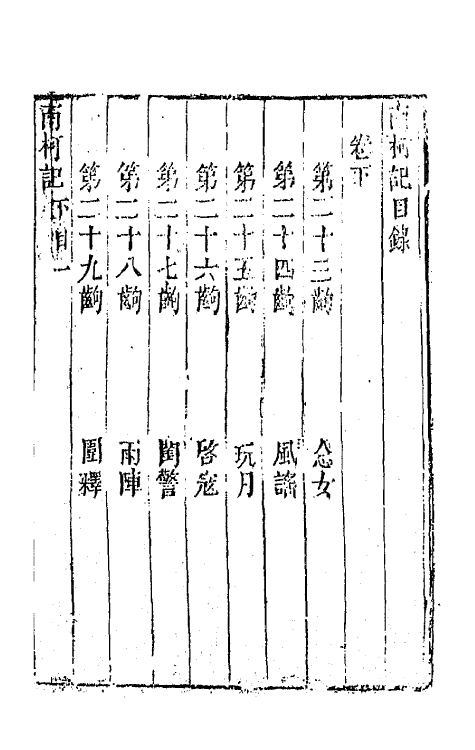 南柯記目錄
卷下
第二十三齣 念女
第二十四齣 風謠
第二十五齣 玩月
第二十六齣 啓寇
第二十七齣 閨警
第二十八齣 雨陣
第二十九齣 圍釋
南柯記 下目 一